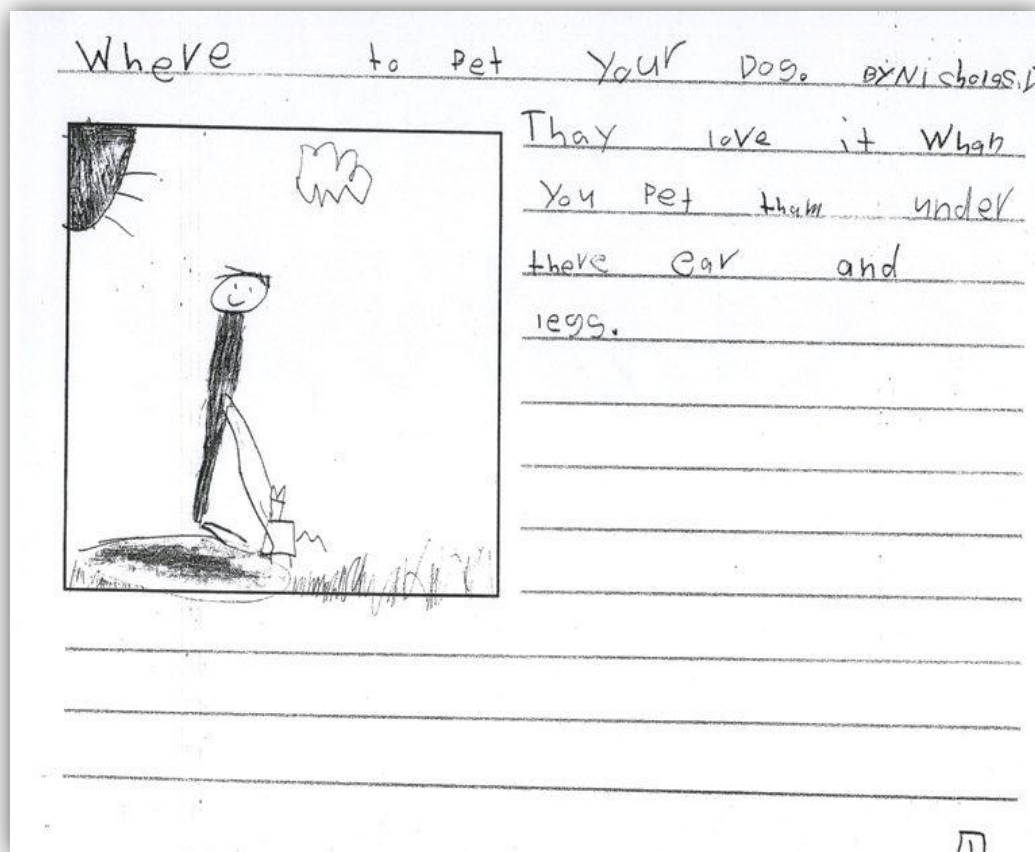 Where to Pet Your Dog. BY Nicholas.D
Thay love it Whan
You Pet tham under
there ear and
legs.
1